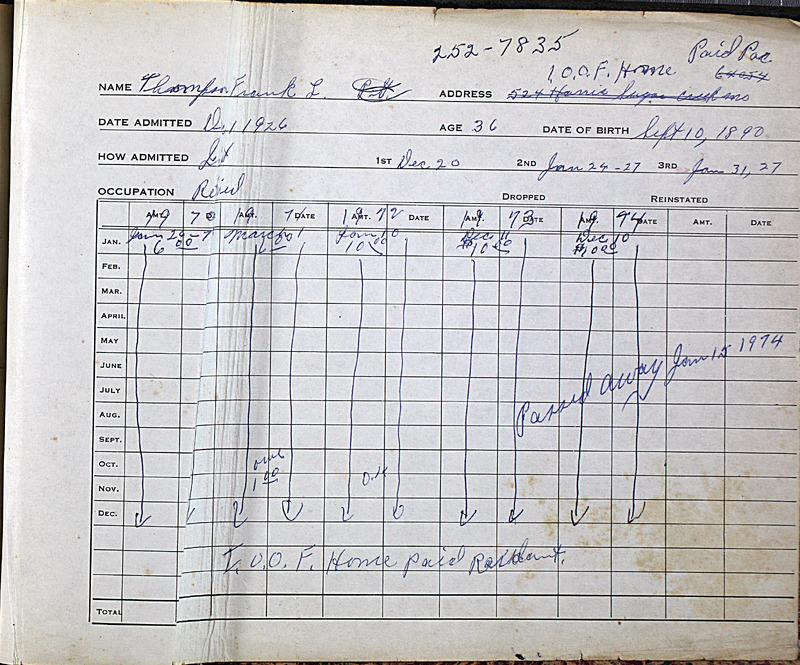 252-7835
I.O.O.F. Home Paid
NAME Thompson, Frank L. ADDRESS 524 Harris Sugar
DATE ADMITTED 1926 AGE 36 DATE OF BIRTH Sept 10, 1890
HOW ADMITTED 1ST Dec 20 2ND Jan 24-27 3RD Jan 31, 27
OCCUPATION
DROPPED REINSTATED
AMT. 19 70 19 AMT. 71 DATE 19 AMT. 72 DATE 19 AMT. 73 DATE 19 AMT. 74 DATE AMT. DATE
JAN. Jan March Jan 10 Dec 11 Dec 10
6 00 6 00 10 00 $10 00 $10 00
FEB.
MAR.
APRIL
MAY
Passed away Jan 15 1974
JUNE
JULY
AUG.
SEPT.
OCT. owe
NOV. 1 00
DEC.
I.O.O.F. Home paid
TOTAL